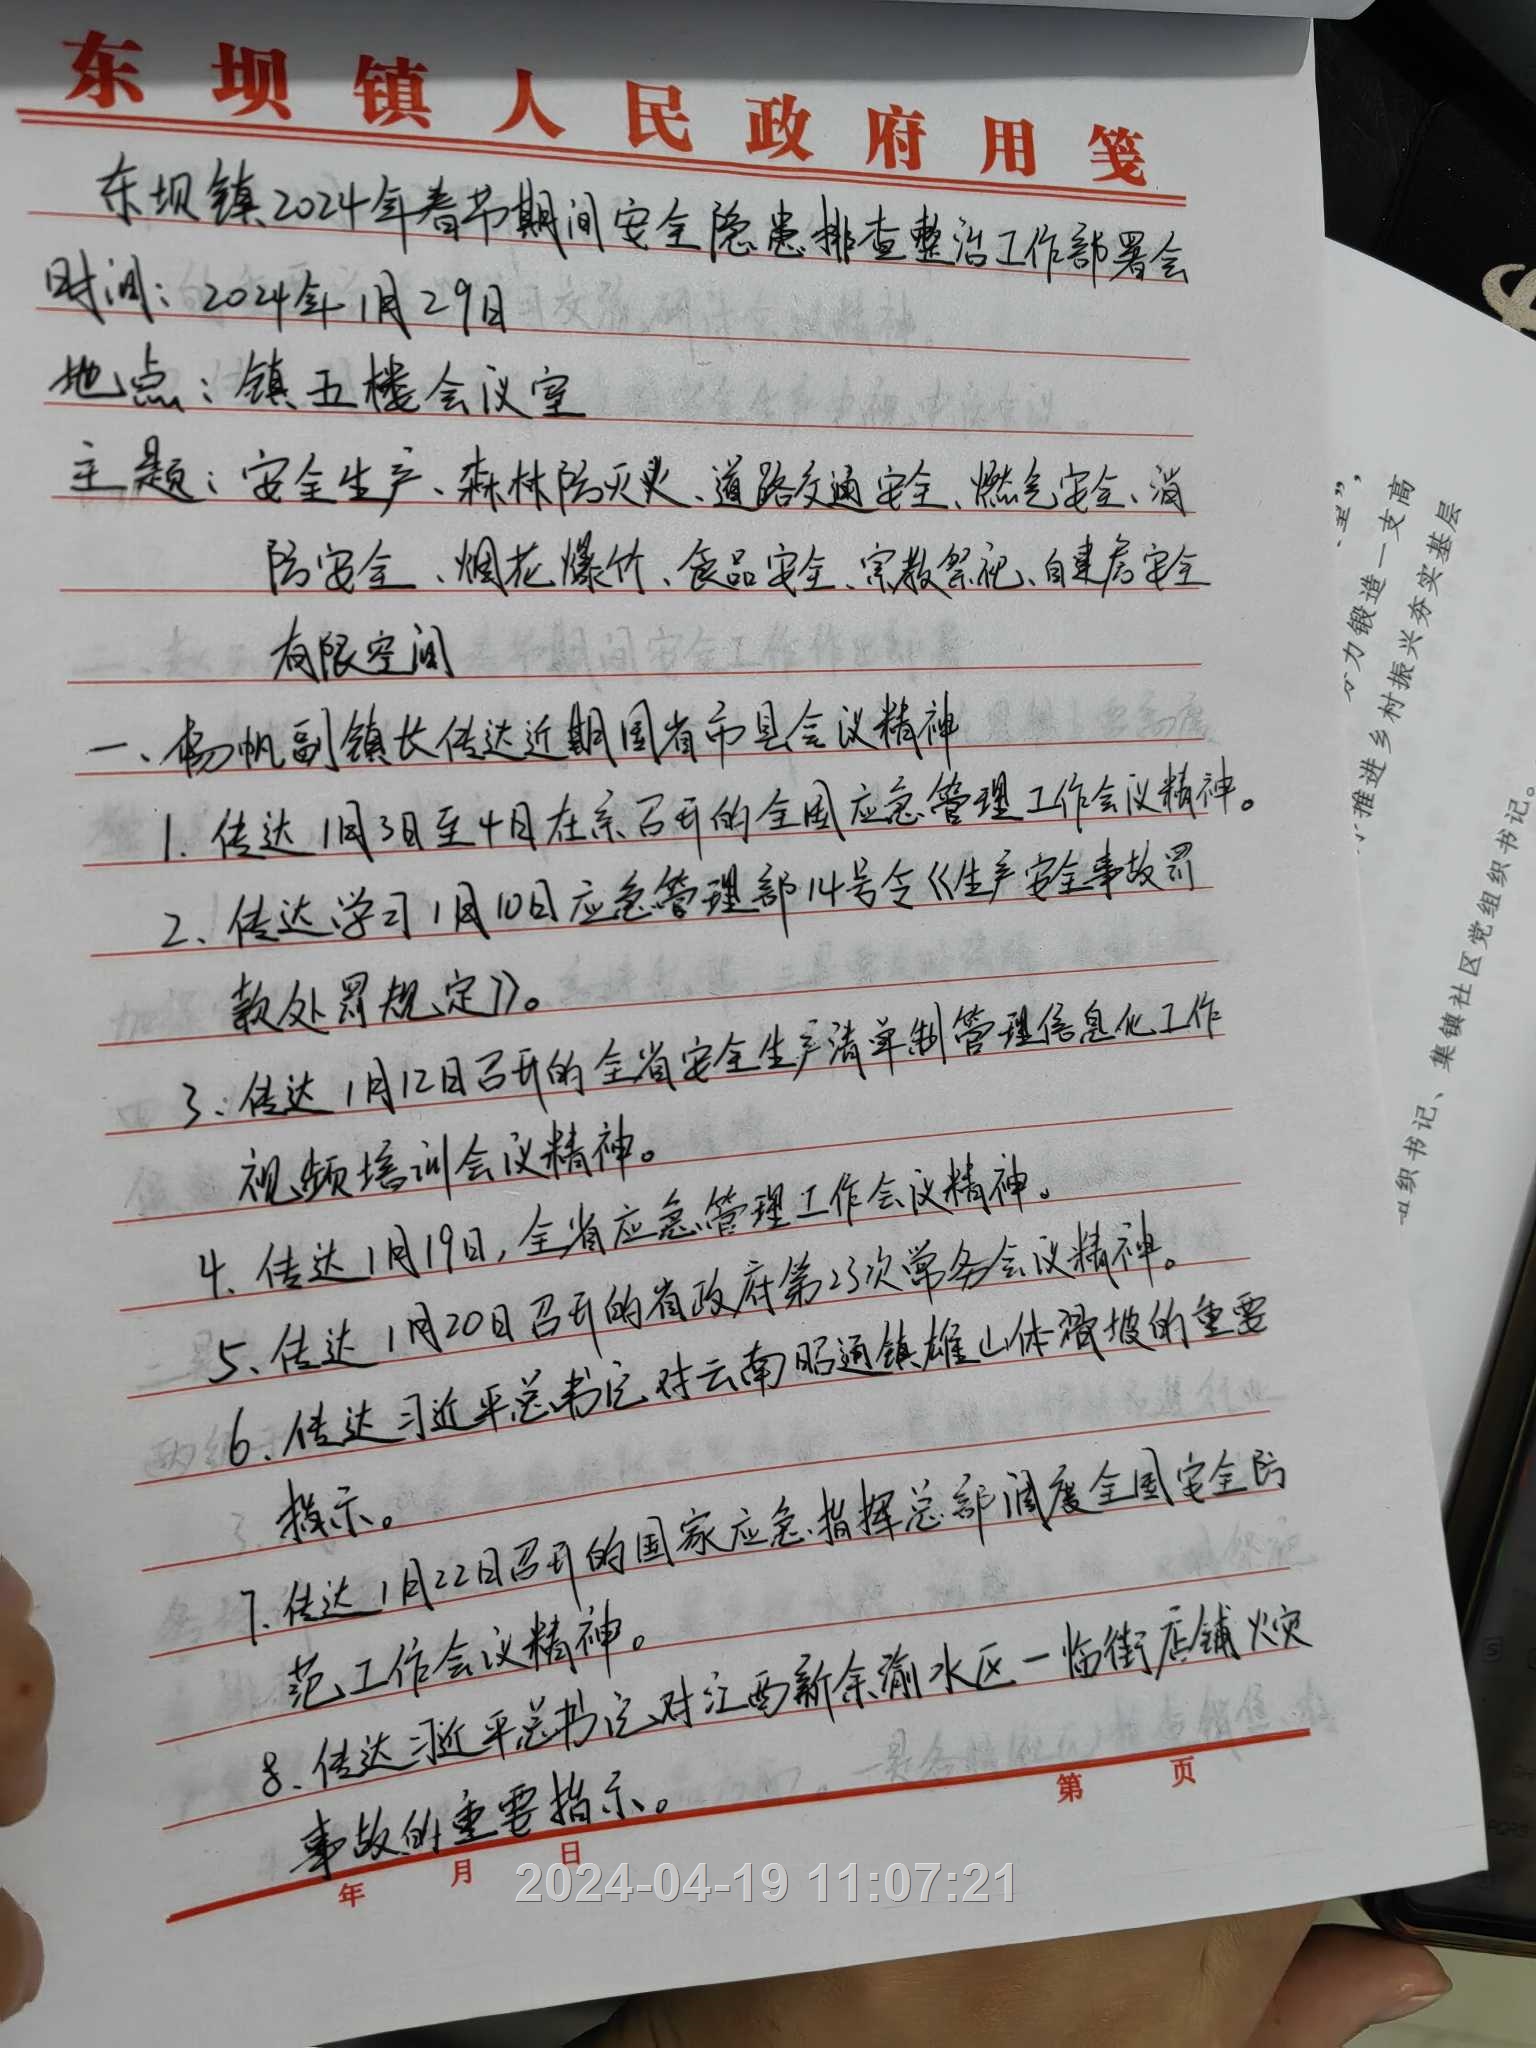 东坝镇人民政府用笺
东坝镇2024年春节期间安全隐患排查整治工作部署会
时间：2024年1月29日
地点：镇五楼会议室
主题：安全生产、森林防灭火、道路交通安全、燃气安全、消
防安全、烟花爆竹、食品安全、宗教祭祀、自建房安全
有限空间
一、杨帆副镇长传达近期国省市县会议精神
1、传达1月3日至4日在京召开的全国应急管理工作会议精神。
2、传达学习1月10日应急管理部14号令《生产安全事故罚
款处罚规定》。
3、传达1月12日召开的全省安全生产清单制管理信息化工作
视频培训会议精神。
4、传达1月19日，全省应急管理工作会议精神。
5、传达1月20日召开的省政府第23次常务会议精神。
6、传达习近平总书记对云南昭通镇雄山体滑坡的重要
指示。
7、传达1月22日召开的国家应急指挥总部调度全国安全防
范工作会议精神。
8、传达习近平总书记对江西新余渝水区一临街店铺火灾
事故的重要指示。
年 月 日 第 页
2024-04-19 11:07:21
力锻造一支高
推进乡村振兴夯实基层
组织书记、集镇社区党组织书记。